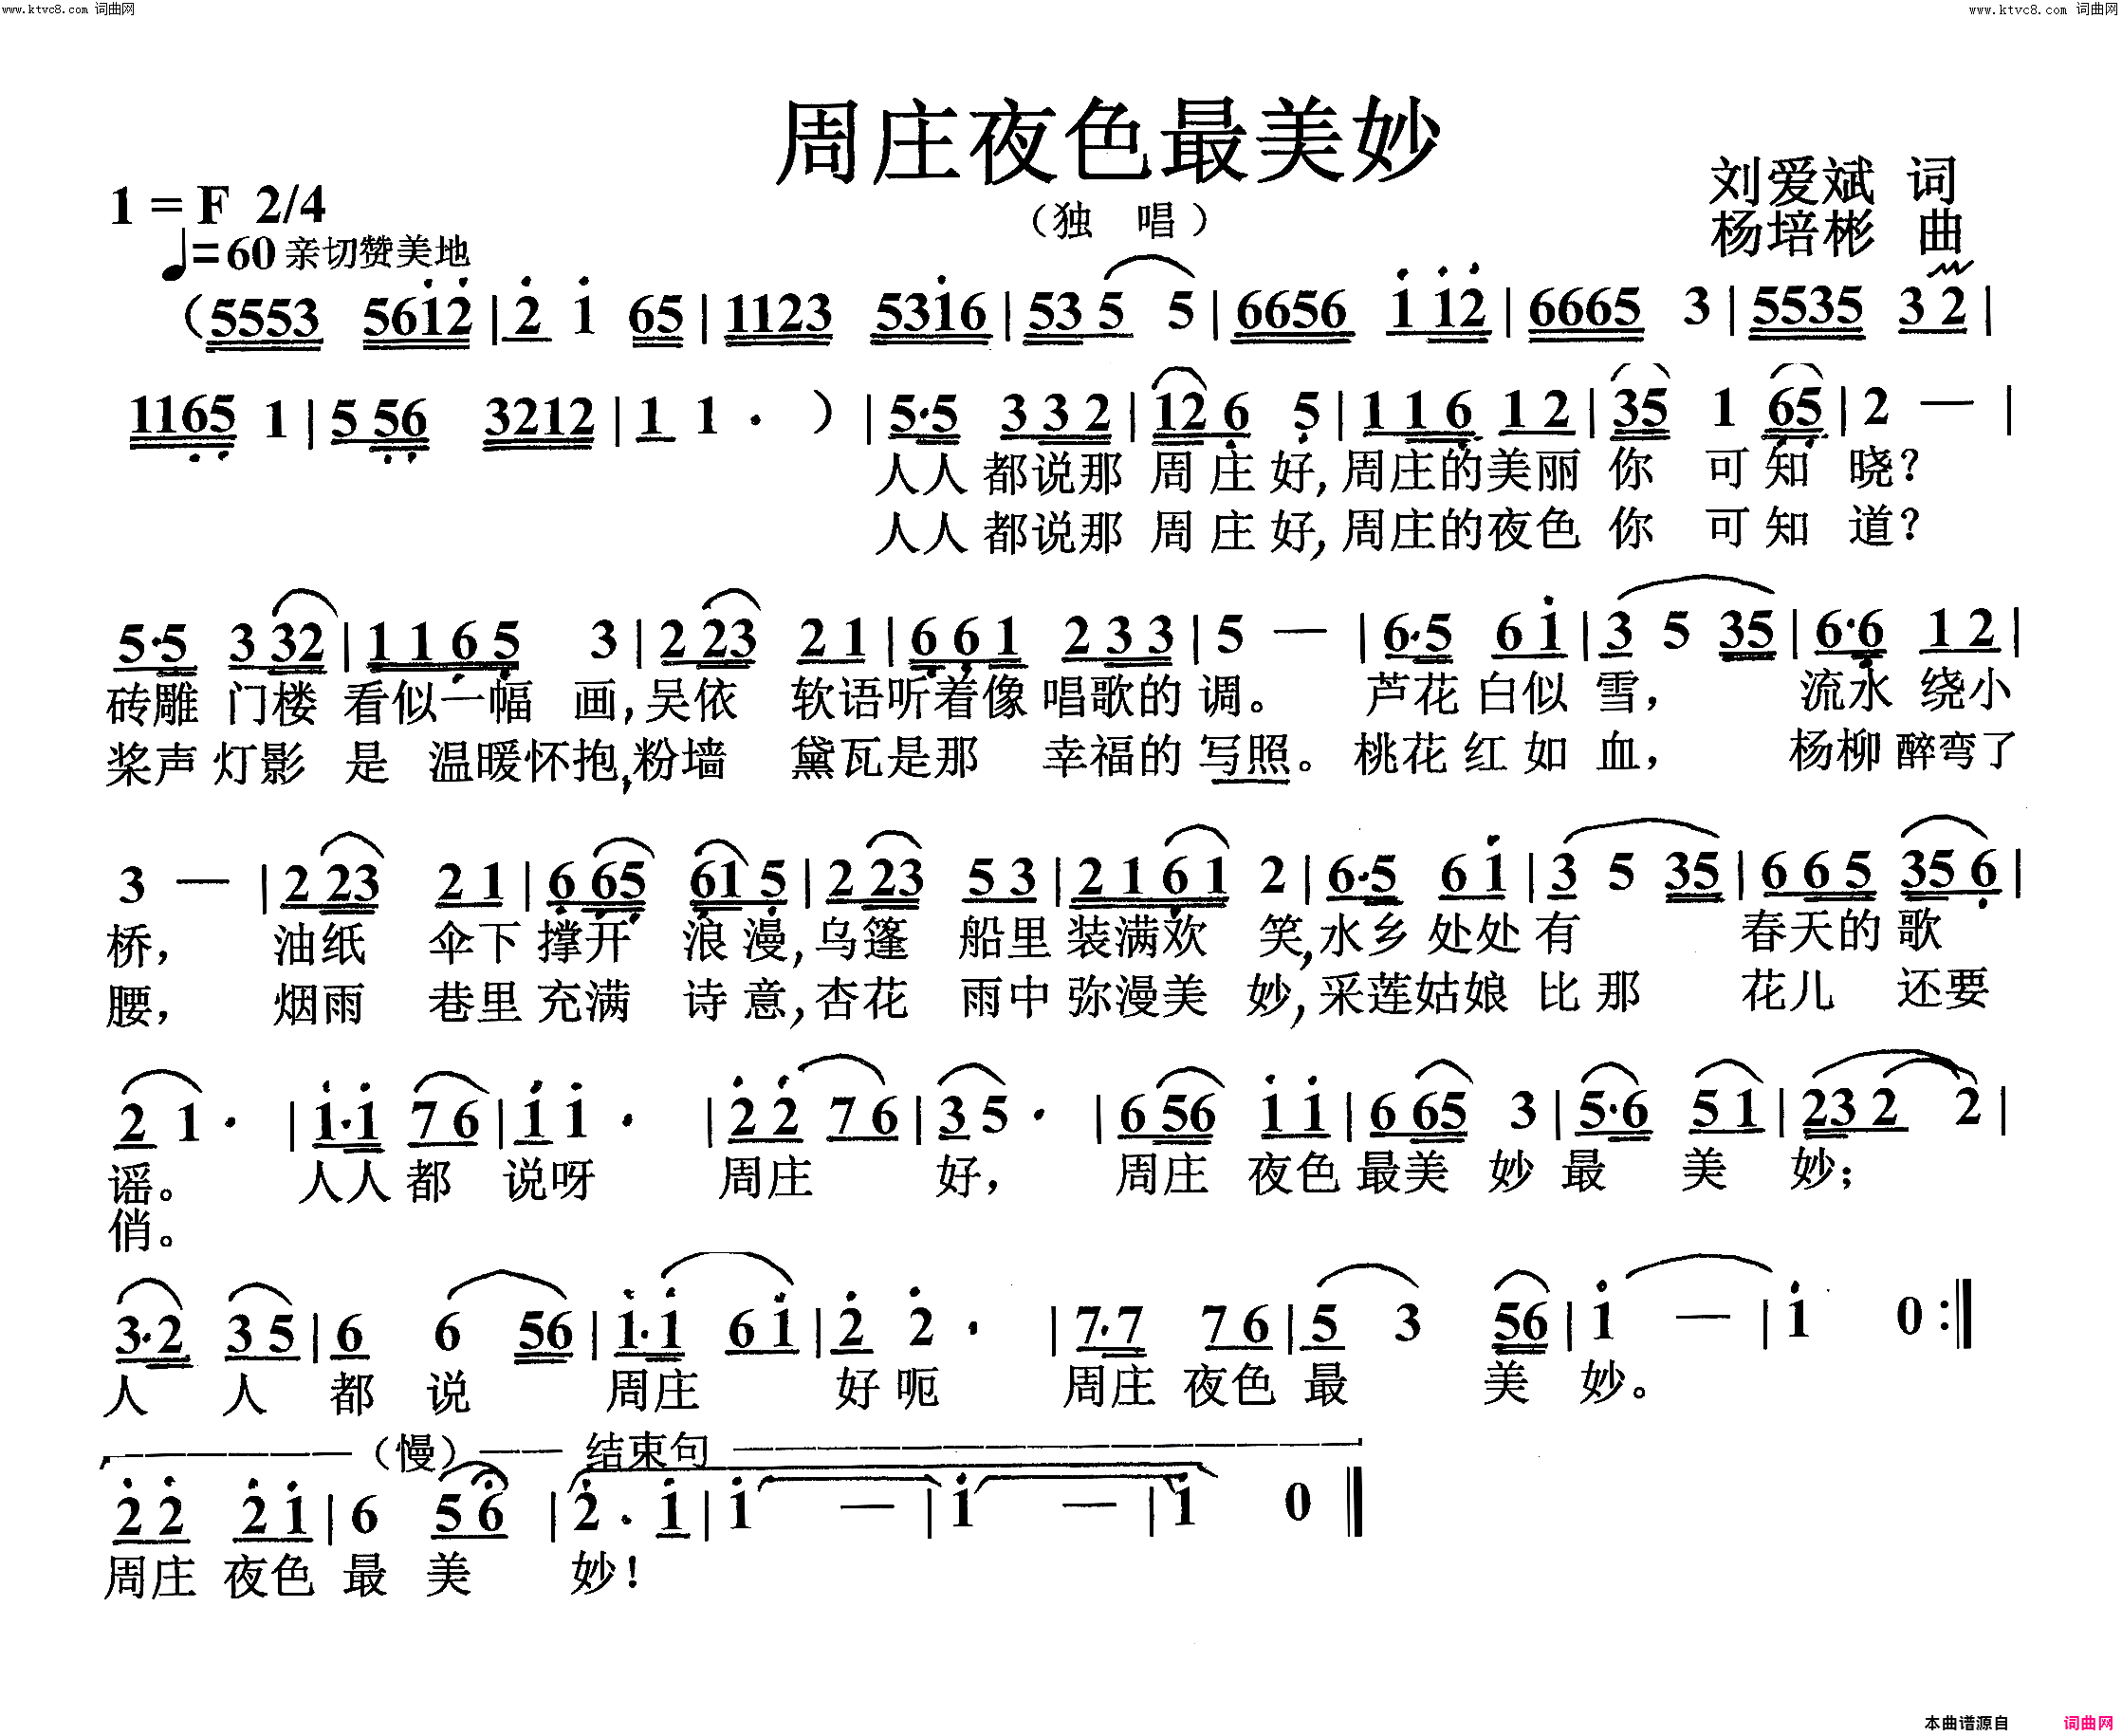 www.ktvc8.com 词曲网
www.ktvc8.com 词曲网
周庄夜色最美妙
（独 唱）
刘爱斌 词
杨培彬 曲
1 = F 2/4
♩=60 亲切赞美地
（5553 561̇2̇ | 2̇ 1̇ 65 | 1123 531̇6 | 53 5 5 | 6656 1̇ 1̇2̇ | 6665 3 | 5535 3 2 |
116̣5̣ 1 | 5 5̣6̣ 3212 | 1 1 · ） | 5·5 3 3 2 | 12 6̣ 5̣ | 1 1 6̣ 1 2 | 35 1 6̣5̣ | 2 — |
人人 都说那 周 庄 好, 周庄的美丽 你 可 知 晓？
人人 都说那 周 庄 好, 周庄的夜色 你 可 知 道？
5·5 3 32 | 1 1 6̣ 5̣ 3 | 2 23 2 1 | 6̣ 6̣ 1 2 3 3 | 5 — | 6·5 6 1̇ | 3 5 35 | 6·6 1 2 |
砖雕 门楼 看似一幅 画, 吴依 软语听着像 唱歌的 调。 芦花 白似 雪， 流水 绕小
桨声 灯影 是 温暖怀抱, 粉墙 黛瓦是那 幸福的 写照。 桃花 红如 血， 杨柳 醉弯了
3 — | 2 23 2 1 | 6̣ 6̣5̣ 6̣1 5̣ | 2 23 5 3 | 2 1 6̣ 1 2 | 6·5 6 1̇ | 3 5 35 | 6 6 5 35 6̣ |
桥， 油纸 伞下 撑开 浪漫, 乌篷 船里 装满欢 笑, 水乡 处处 有 春天的 歌
腰， 烟雨 巷里 充满 诗意, 杏花 雨中 弥漫美 妙, 采莲姑娘 比那 花儿 还要
2 1 · | 1̇·1̇ 7 6 | 1̇ 1̇ · | 2̇ 2̇ 7 6 | 3 5 · | 6 56 1̇ 1̇ | 6 65 3 | 5·6 5 1 | 23 2 2 |
谣。 人人 都 说呀 周庄 好， 周庄 夜色 最美 妙 最 美 妙；
俏。
3·2 3 5 | 6 6 56 | 1̇·1̇ 6 1̇ | 2̇ 2̇ · | 7·7 7 6 | 5 3 56 | 1̇ — | 1̇ 0 :‖
人 人 都 说 周庄 好 呃 周庄 夜色 最 美 妙。
（慢） 结束句
2̇ 2̇ 2̇ 1̇ | 6 5 6 | 2̇ · 1̇ | 1̇ — | 1̇ — | 1̇ 0 ‖
周庄 夜色 最 美 妙！
本曲谱源自 词曲网